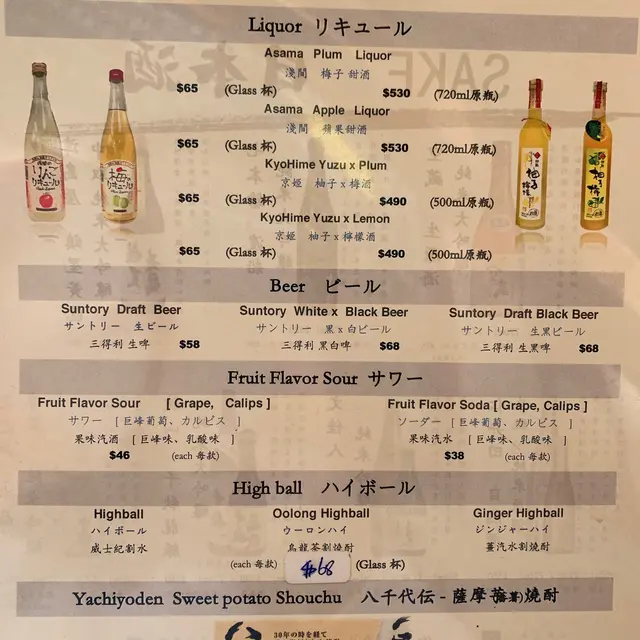 Liquor リキュール
Asama Plum Liquor
淺間 梅子甜酒
$65 (Glass 杯) $530 (720ml原瓶)
Asama Apple Liquor
淺間 蘋果甜酒
$65 (Glass 杯) $530 (720ml原瓶)
KyoHime Yuzu x Plum
京姬 柚子 x 梅酒
$65 (Glass 杯) $490 (500ml原瓶)
KyoHime Yuzu x Lemon
京姬 柚子 x 檸檬酒
$65 (Glass 杯) $490 (500ml原瓶)
Beer ビール
Suntory Draft Beer
サントリー 生ビール
三得利 生啤 $58
Suntory White x Black Beer
サントリー 黒 x 白ビール
三得利 黑白啤 $68
Suntory Draft Black Beer
サントリー 生黒ビール
三得利 生黑啤 $68
Fruit Flavor Sour サワー
Fruit Flavor Sour [ Grape, Calips ]
サワー [ 巨峰葡萄、カルピス ]
果味汽酒 [ 巨峰味、乳酸味 ]
$46 (each 每款)
Fruit Flavor Soda [ Grape, Calips ]
ソーダー [ 巨峰葡萄、カルピス ]
果味汽水 [ 巨峰味、乳酸味 ]
$38 (each 每款)
High ball ハイボール
Highball
ハイボール
威士紀割水
Oolong Highball
ウーロンハイ
烏龍茶割燒酎
Ginger Highball
ジンジャーハイ
薑汽水割燒酎
(each 每款) $68 (Glass 杯)
Yachiyoden Sweet potato Shouchu 八千代伝 - 薩摩芋(蕃薯)焼酎
30年の時を経て